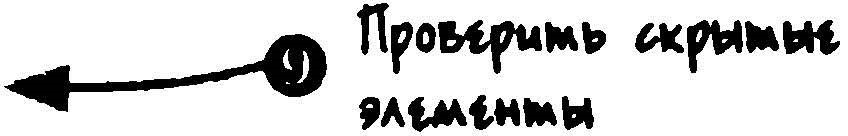 9 Проверить скрытые
элементы